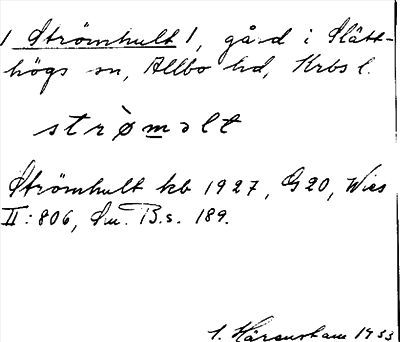 1 Strömhult 1, gård i Slätt-
högs sn, Allbo hd, Krbs l.
strø̀məlt
Strömhult kb 1927, G20, Wies
II: 806, Su. B.s. 189.
1933